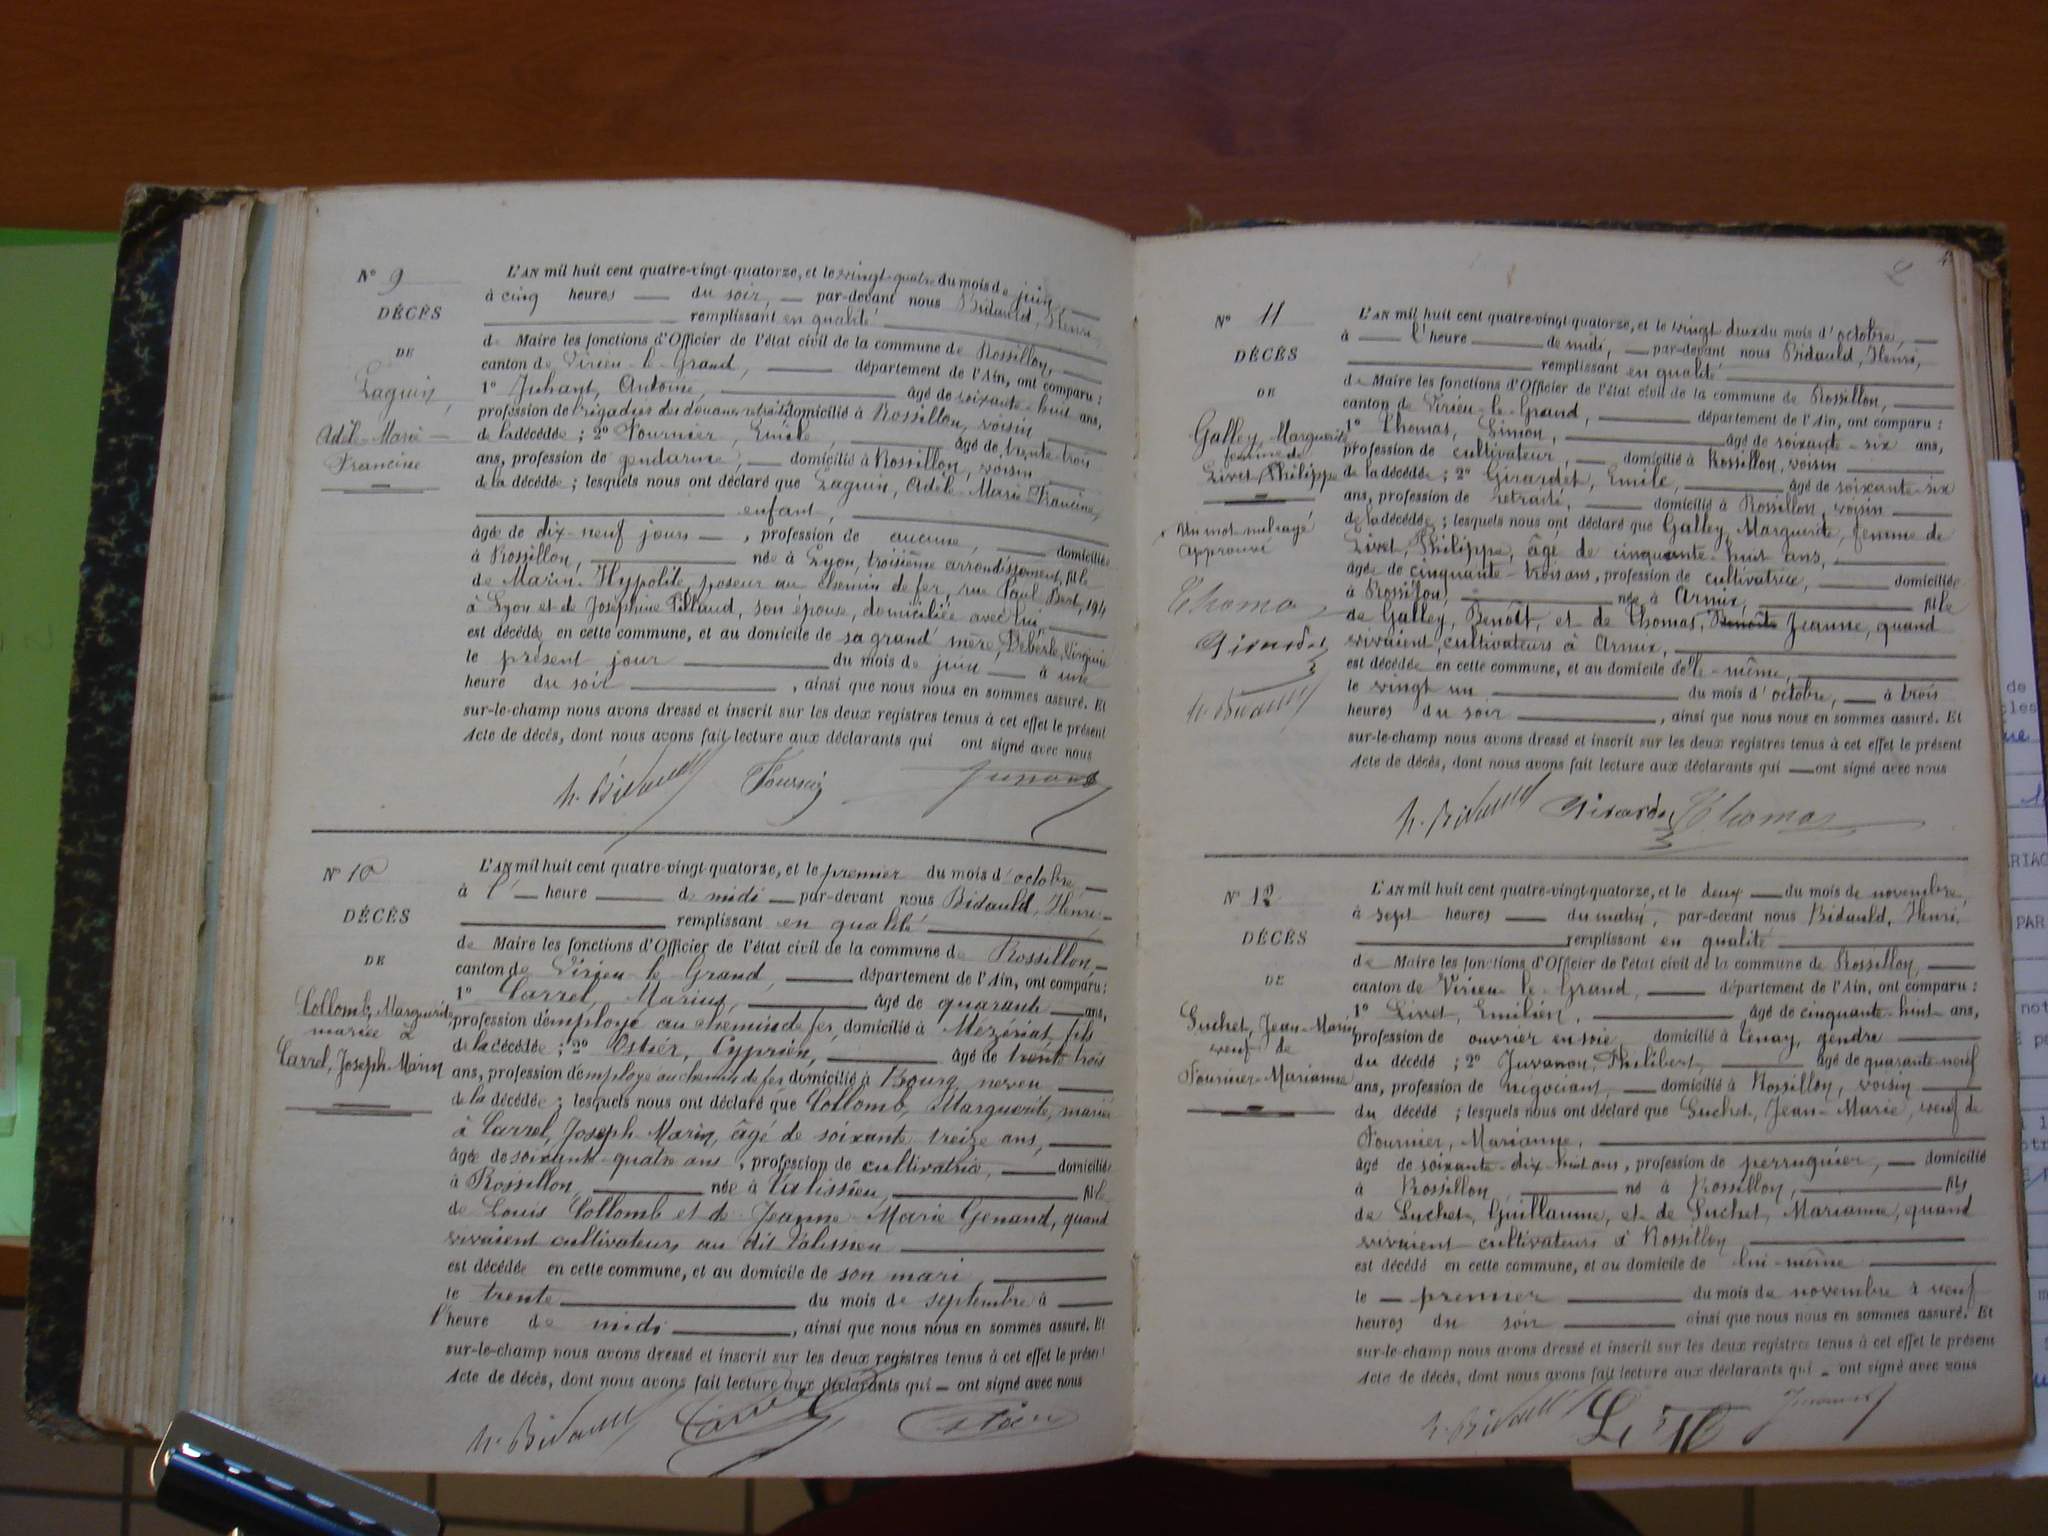 N° 9
DÉCÈS
DE
Laguin,
Adèle-Marie-
Francine
L'AN mil huit cent quatre-vingt-quatorze, et le vingt-quatre du mois de juin
à cinq heures du soir, par-devant nous Bidauld, Henri,
remplissant en qualité
de Maire les fonctions d'Officier de l'état civil de la commune de Rossillon,
canton de Virieu-le-Grand, département de l'Ain, ont comparu :
1° Juhant, Antoine, âgé de soixante-huit ans,
profession de brigadier des douanes retraité domicilié à Rossillon, voisin
de la décédée ; 2° Fournier, Emile, âgé de trente-trois
ans, profession de gendarme, domicilié à Rossillon, voisin
de la décédée ; lesquels nous ont déclaré que Laguin, Adèle-Marie-Francine,
enfant,
âgée de dix-neuf jours, profession de aucune, domiciliée
à Rossillon, née à Lyon, troisième arrondissement, fille
de Marin-Hypolite, poseur au chemin de fer, rue Paul Bert, 194
à Lyon et de Joséphine Pillaud, son épouse, domiciliée avec lui,
est décédée en cette commune, et au domicile de sa grand'mère, Deberle, Virginie
le présent jour du mois de juin à une
heure du soir, ainsi que nous nous en sommes assuré. Et
sur-le-champ nous avons dressé et inscrit sur les deux registres tenus à cet effet le présent
Acte de décès, dont nous avons fait lecture aux déclarants qui ont signé avec nous
h. Bidauld
N° 10
DÉCÈS
DE
Collomb, Marguerite
mariée à
Carrel, Joseph-Marin
L'AN mil huit cent quatre-vingt-quatorze, et le premier du mois d'octobre,
à l'heure de midi par-devant nous Bidauld, Henri
remplissant en qualité
de Maire les fonctions d'Officier de l'état civil de la commune de Rossillon,
canton de Virieu-le-Grand, département de l'Ain, ont comparu :
1° Carrel, Marius, âgé de quarante ans,
profession d'employé au chemin de fer, domicilié à Mezériat, fils
de la décédée ; 2° Ostier, Cyprien, âgé de trente-trois
ans, profession d'employé au chemin de fer domicilié à Bourg, neveu
de la décédée ; lesquels nous ont déclaré que Collomb, Marguerite, mariée
à Carrel, Joseph-Marin, âgé de soixante treize ans,
âgée de soixante-quatre ans, profession de cultivatrice, domiciliée
à Rossillon, née à Vulissieu, fille
de Louis Collomb et de Jeanne-Marie Genand, quand
vivaient cultivateurs au dit
est décédée en cette commune, et au domicile de son mari
le trente du mois de septembre à
l'heure de midi, ainsi que nous nous en sommes assuré. Et
sur-le-champ nous avons dressé et inscrit sur les deux registres tenus à cet effet le présent
Acte de décès, dont nous avons fait lecture aux déclarants qui ont signé avec nous
h. Bidauld Carrel Ostier
N° 11
DÉCÈS
DE
Galley, Marguerite
femme de
Livet, Philippe
x Un mot surchargé
approuvé
Thomas
Girardet
h. Bidauld
L'AN mil huit cent quatre-vingt-quatorze, et le vingt deux du mois d'octobre,
à l'heure de midi, par-devant nous Bidauld, Henri,
remplissant en qualité
de Maire les fonctions d'Officier de l'état civil de la commune de Rossillon,
canton de Virieu-le-Grand, département de l'Ain, ont comparu :
1° Thomas, Simon, âgé de soixante-six ans,
profession de cultivateur, domicilié à Rossillon, voisin
de la décédée ; 2° Girardet, Emile, âgé de soixante-six
ans, profession de retraité, domicilié à Rossillon, voisin
de la décédée ; lesquels nous ont déclaré que Galley, Marguerite, femme de
Livet, Philippe, âgé de cinquante-huit ans,
âgée de cinquante-trois ans, profession de cultivatrice, domiciliée
à Rossillon, née à Armix, fille
de Galley, Benoît, et de Thomas, Benoîte Jeanne, quand
vivaient, cultivateurs à Armix,
est décédée en cette commune, et au domicile d'elle-même,
le vingt un du mois d'octobre, à trois
heures du soir, ainsi que nous nous en sommes assuré. Et
sur-le-champ nous avons dressé et inscrit sur les deux registres tenus à cet effet le présent
Acte de décès, dont nous avons fait lecture aux déclarants qui ont signé avec nous
h. Bidauld Girardet Thomas
N° 12
DÉCÈS
DE
Suchet, Jean-Marie
veuf de
Fournier-Marianne
L'AN mil huit cent quatre-vingt-quatorze, et le deux du mois de novembre,
à sept heures du matin, par-devant nous Bidauld, Henri,
remplissant en qualité
de Maire les fonctions d'Officier de l'état civil de la commune de Rossillon,
canton de Virieu-le-Grand, département de l'Ain, ont comparu :
1° Livet, Emilien, âgé de cinquante-huit ans,
profession de ouvrier en soie, domicilié à Tenay, gendre
du décédé ; 2° Juvanon, Philibert, âgé de quarante-neuf
ans, profession de négociant, domicilié à Rossillon, voisin
du décédé ; lesquels nous ont déclaré que Suchet, Jean-Marie, veuf de
Fournier, Marianne,
âgé de soixante-dix-huit ans, profession de perruquier, domicilié
à Rossillon, né à Rossillon, fils
de Suchet, Guillaume, et de Suchet, Marianne, quand
vivaient cultivateurs à Rossillon
est décédé en cette commune, et au domicile de lui-même
le premier du mois de novembre à neuf
heures du soir ainsi que nous nous en sommes assuré. Et
sur-le-champ nous avons dressé et inscrit sur les deux registres tenus à cet effet le présent
Acte de décès, dont nous avons fait lecture aux déclarants qui ont signé avec nous
h. Bidauld